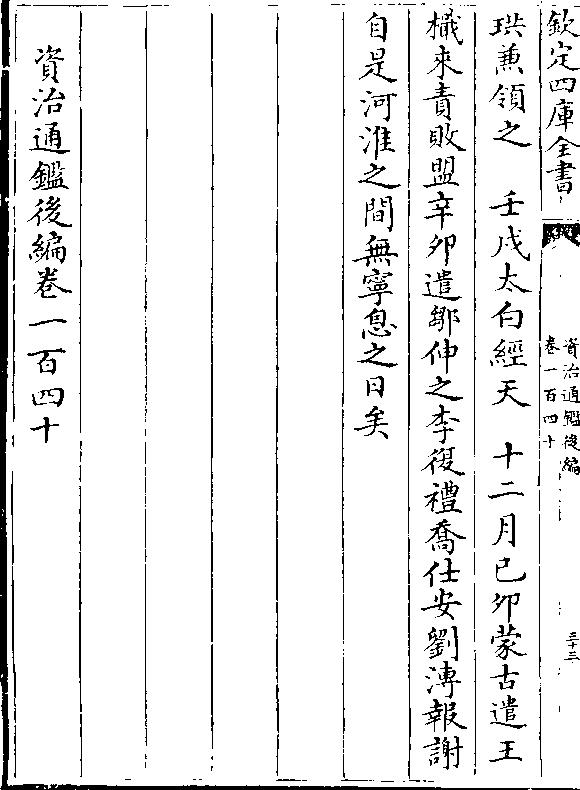 欽定四庫全書
資治通鑑後編
卷一百四十
三十三
珙兼領之　壬戌太白經天　十二月己卯蒙古遣王
檝來責敗盟辛卯遣鄒伸之李復禮喬仕安劉溥報謝
自是河淮之間無寧息之日矣
資治通鑑後編卷一百四十